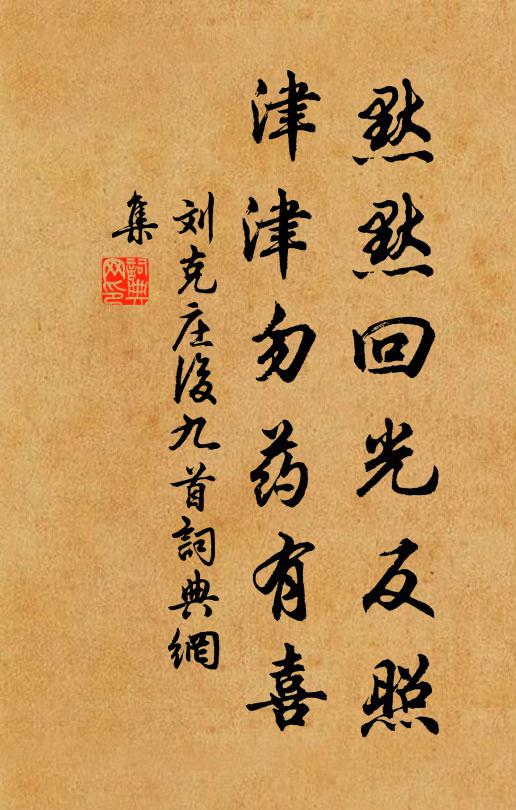 默默回光反照
津津勿药有喜
刘克庄後九首詞典網
集
詞典
网印